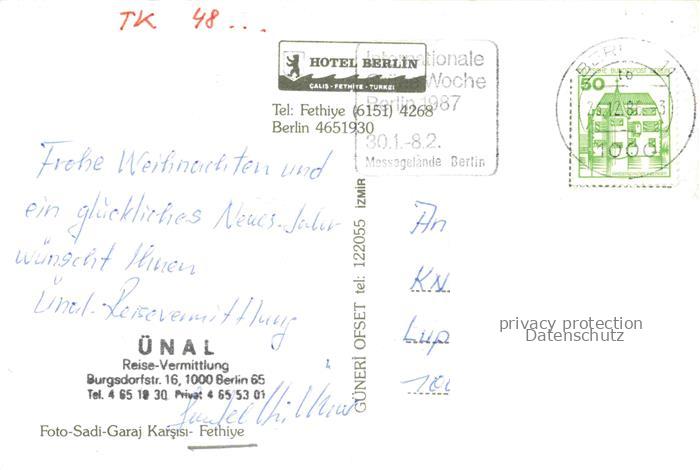 TK 48...
HOTEL BERLİN
ÇALIŞ - FETHİYE - TÜRKEI
Tel: Fethiye (6151) 4268
Berlin 4651930
Internationale
Woche
Berlin 1987
30.1.-8.2.
Messegelände Berlin
BERLIN 11
50
1000
Frohe Weihnachten und
ein glückliches Neues-Jahr
wünscht Ihnen
Ünal-Reisevermittlung
ÜNAL
Reise-Vermittlung
Burgsdorfstr. 16, 1000 Berlin 65
Tel. 4 65 19 30 Privat 4 65 53 01
Foto-Sadi-Garaj Karşısı- Fethiye
GÜNERİ OFSET tel: 122055 İZMİR
An
KN
Lup
100
privacy protection
Datenschutz